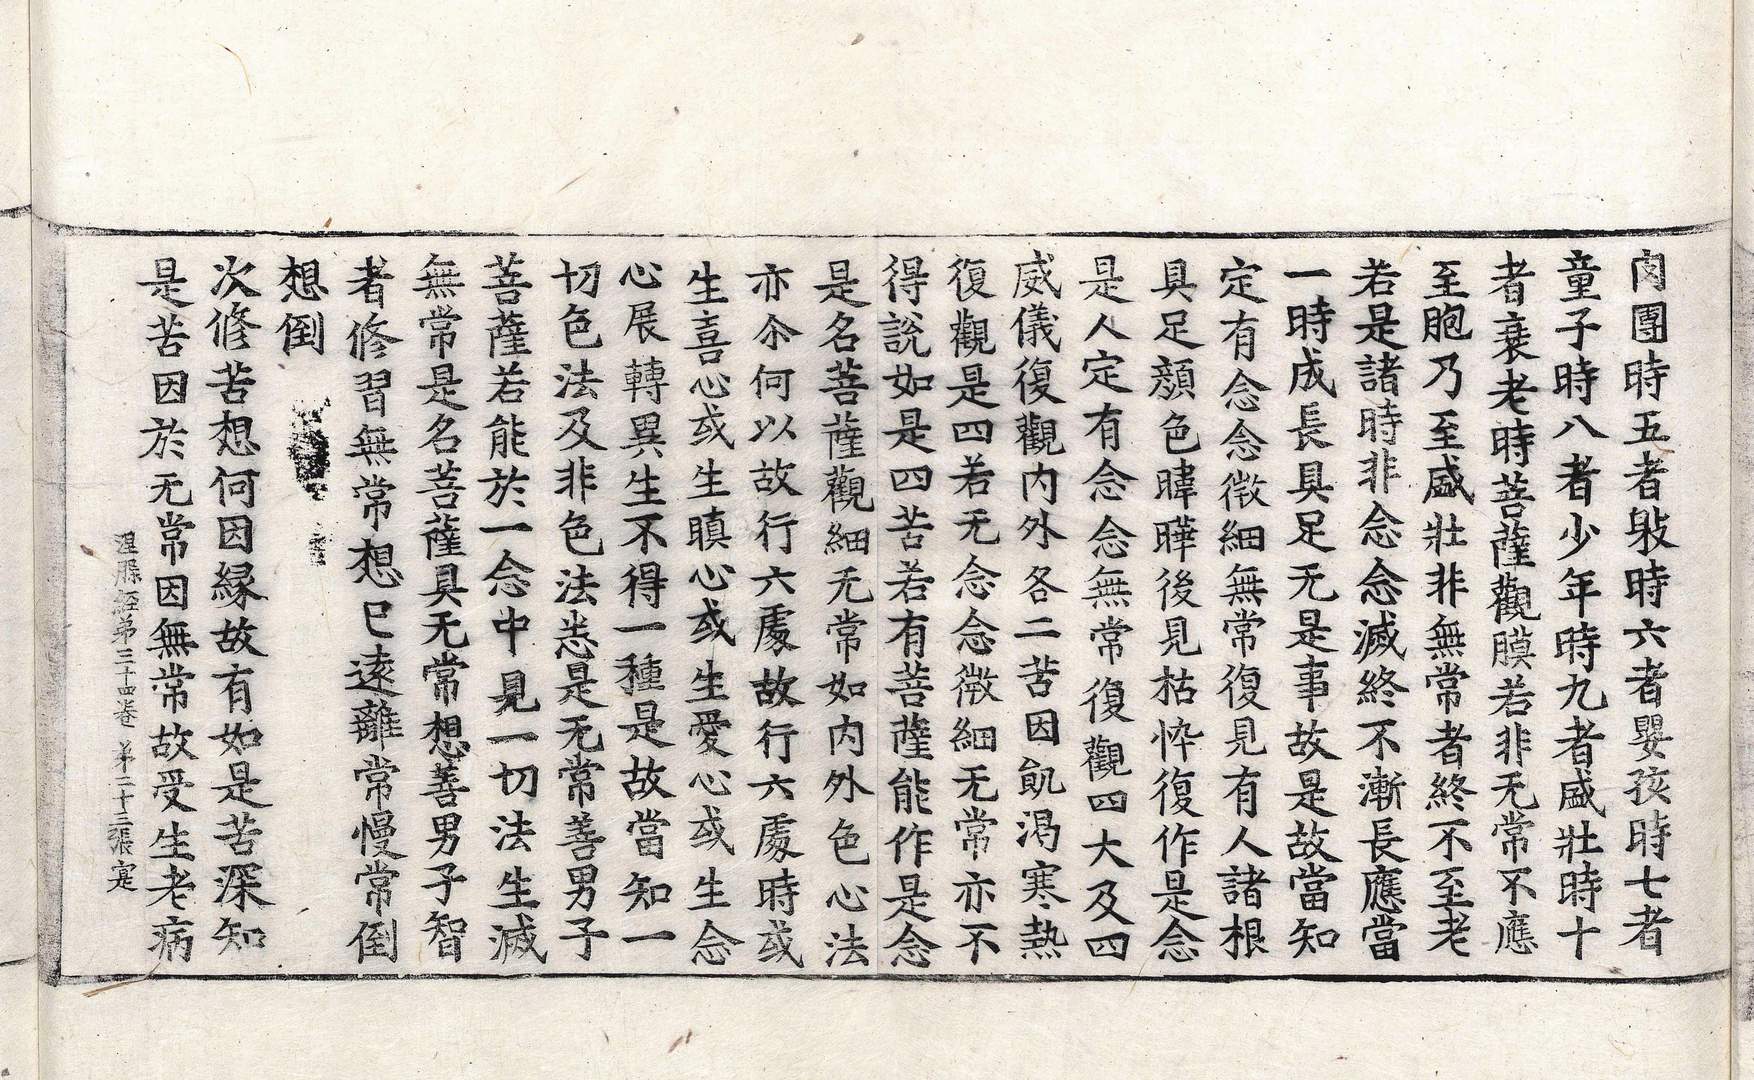 肉團時五者𣫍時六者嬰孩時七者
童子時八者少年時九者盛壯時十
者衰老時菩薩觀膜若非无常不應
至胞乃至盛壯非無常者終不至老
若是諸時非念念滅終不漸長應當
一時成長具足无是事故是故當知
定有念念微細無常復見有人諸根
具足顔色暐曄後見枯悴復作是念
是人定有念念無常復觀四大及四
威儀復觀内外各二苦因飢渇寒熱
復觀是四若无念念微細无常亦不
得說如是四苦若有菩薩能作是念
是名菩薩觀細无常如内外色心法
亦尒何以故行六處故行六處時或
生喜心或生瞋心或生愛心或生念
心展轉異生不得一種是故當知一
切色法及非色法悉是无常善男子
菩薩若能於一念中見一切法生滅
無常是名菩薩具无常想善男子智
者修習無常想已遠離常慢常倒
想倒
次修苦想何因縁故有如是苦深知
是苦因於无常因無常故受生老病
涅槃經第三十四卷 第二十三張 寔